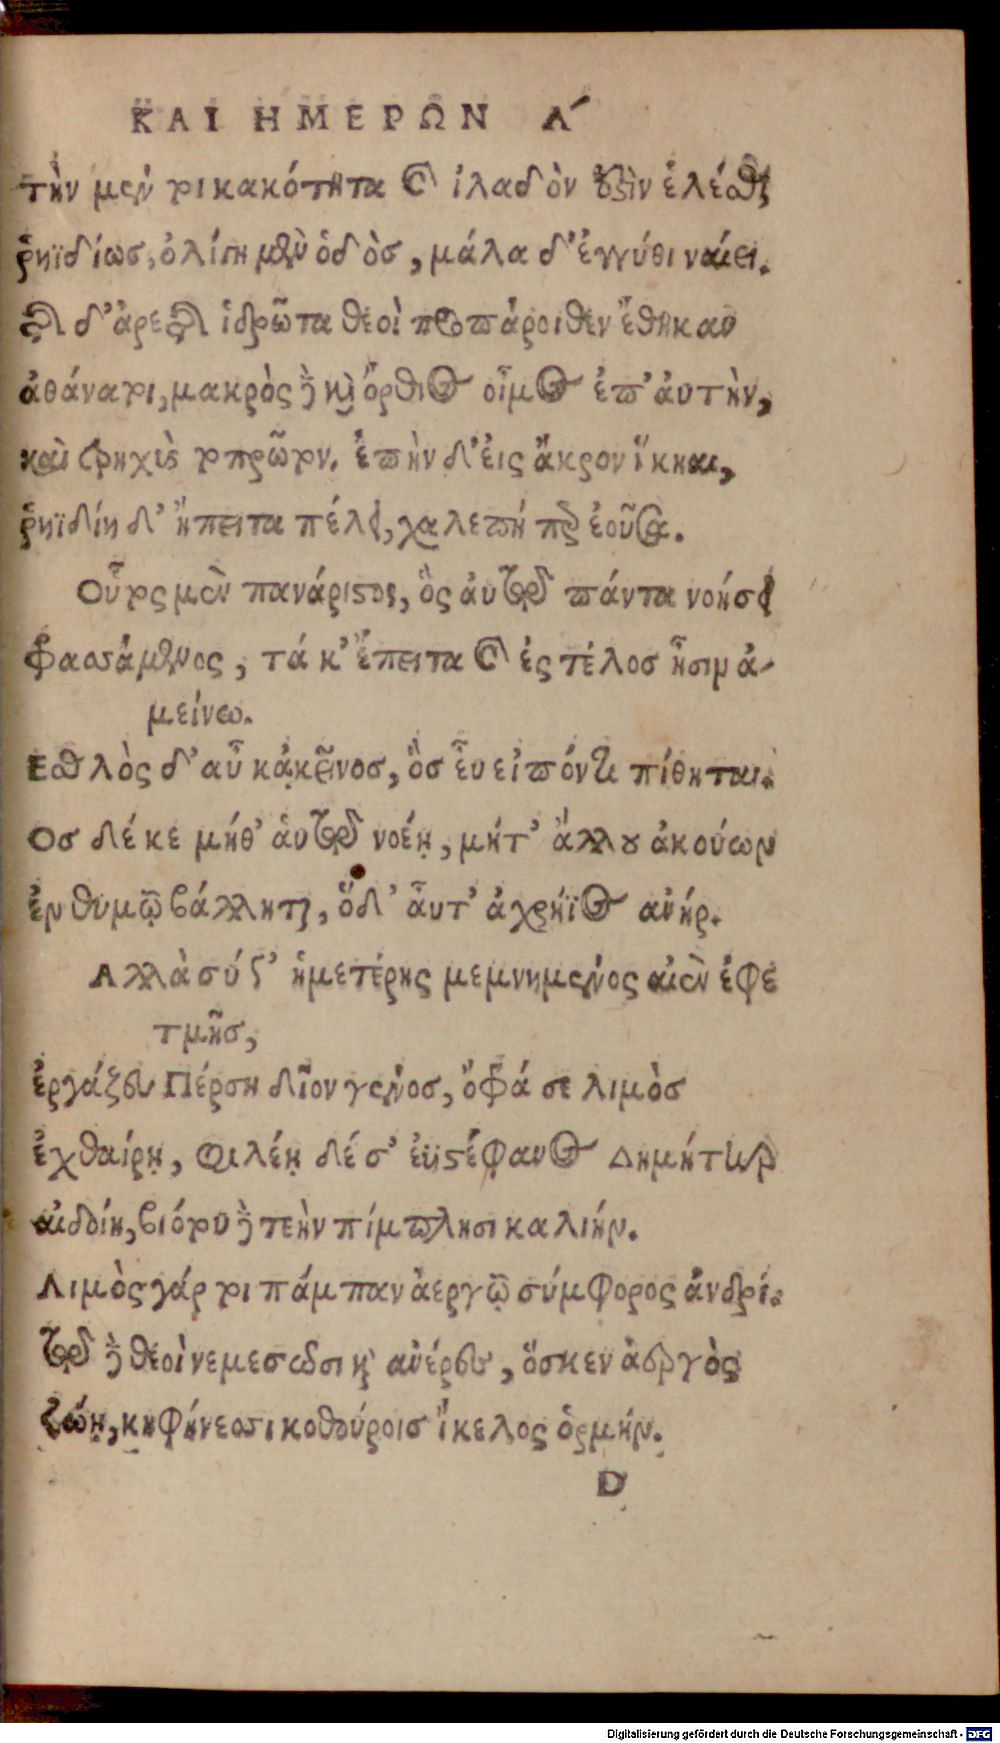 ΚΑΙ ΗΜΕΡΩΝ Α´
τὴν μέν τοι κακότητα καὶ ἰλαδὸν ἔστιν ἑλέσθαι
ῥηϊδίως, ὀλίγη μὲν ὁδὸς, μάλα δ’ ἐγγύθι ναίει.
τῆς δ’ ἀρετῆς ἱδρῶτα θεοὶ προπάροιθεν ἔθηκαν
ἀθάνατοι, μακρὸς δὲ καὶ ὄρθιος οἶμος ἐπ’ ἀυτὴν,
καὶ τρηχὺς τοπρῶτον. ἐπὴν δ’ ἐις ἄκρον ἵκηαι,
ῥηϊδίη δ’ ἤπειτα πέλει, χαλεπή περ ἐοῦσα.
Οὗτος μὲν πανάριστος, ὃς ἀυτῷ πάντα νοήσει
φρασσάμενος, τά κ’ ἔπειτα καὶ ἐς τέλος ἦσιν ἀ-
μείνω.
Εσθλὸς δ’ αὖ κἀκεῖνος, ὃς εὖ εἰπόντι πίθηται.
Ος δέ κε μήθ’ ἁυτῷ νοέῃ, μήτ’ ἄλλου ἀκούων
ἐν θυμῷ βάλληται, ὅδ’ ἆυτ’ ἀχρήϊος ἀνήρ.
Αλλὰ σύ γ’ ἡμετέρης μεμνημένος αἰὲν ἐφε
τμῆς,
ἐργάζευ Πέρση δῖον γένος, ὄφρά σε λιμὸς
ἐχθαίρῃ, φιλέῃ δέ σ’ ἐϋστέφανος Δημήτηρ
αἰδοίη, βιότου δὲ τεὴν πίμπλησι καλιήν.
Λιμὸς γάρ τοι πάμπαν ἀεργῷ σύμφορος ἀνδρί.
τῷ δὲ θεοὶ νεμεσῶσι καὶ ἀνέρες, ὅς κεν ἀεργὸς
ζώῃ, κηφήνεσσι κοθούροις ἴκελος ὁρμήν.
D
Digitalisierung gefördert durch die Deutsche Forschungsgemeinschaft - DFG